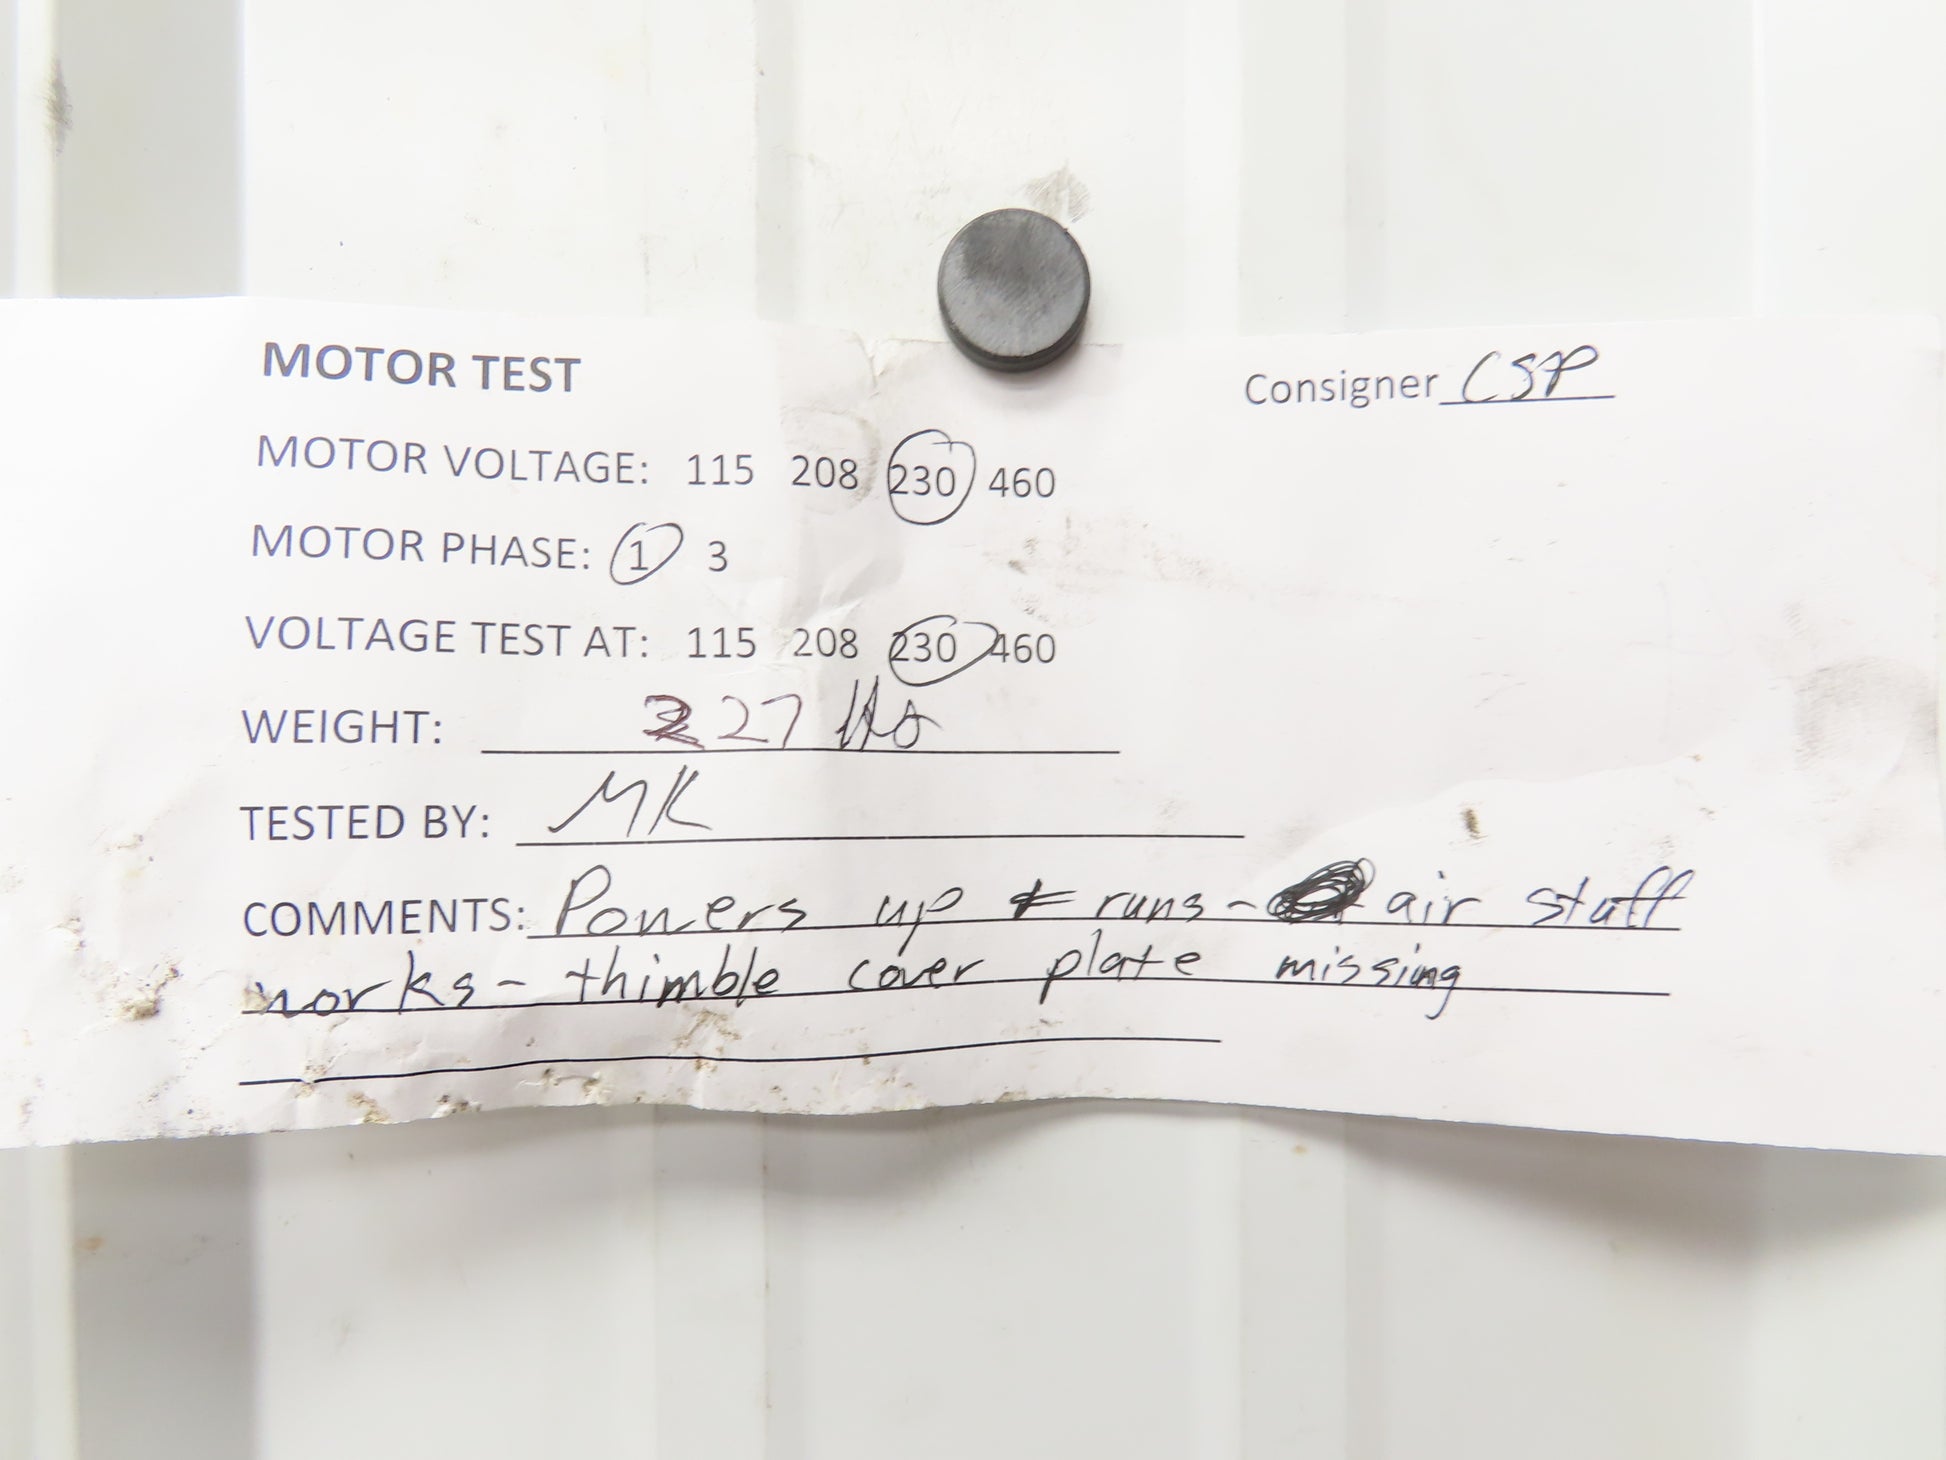 MOTOR TEST
Consigner CSP
MOTOR VOLTAGE: 115 208 230 460
MOTOR PHASE: 1 3
VOLTAGE TEST AT: 115 208 230 460
WEIGHT: 227 lbs
TESTED BY: MK
COMMENTS: Powers up & runs - air stuff
works - thimble cover plate missing